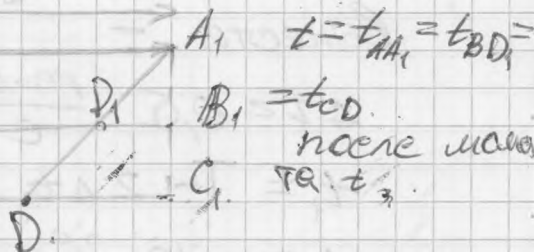 A₁ t = t_{AA₁} = t_{BD₁} =
D₁ B₁ = t_{CD}.
после
C₁. та t₃.
D.